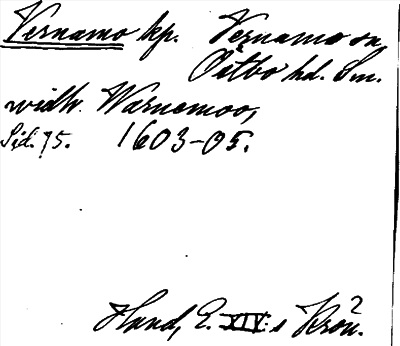 Vernamo kp. Vernamo sn
Östbo hd. Sm.
widh. Warnemoo,
Sid. 75. 1603-05.
Hand, E. XIV:s Krön.